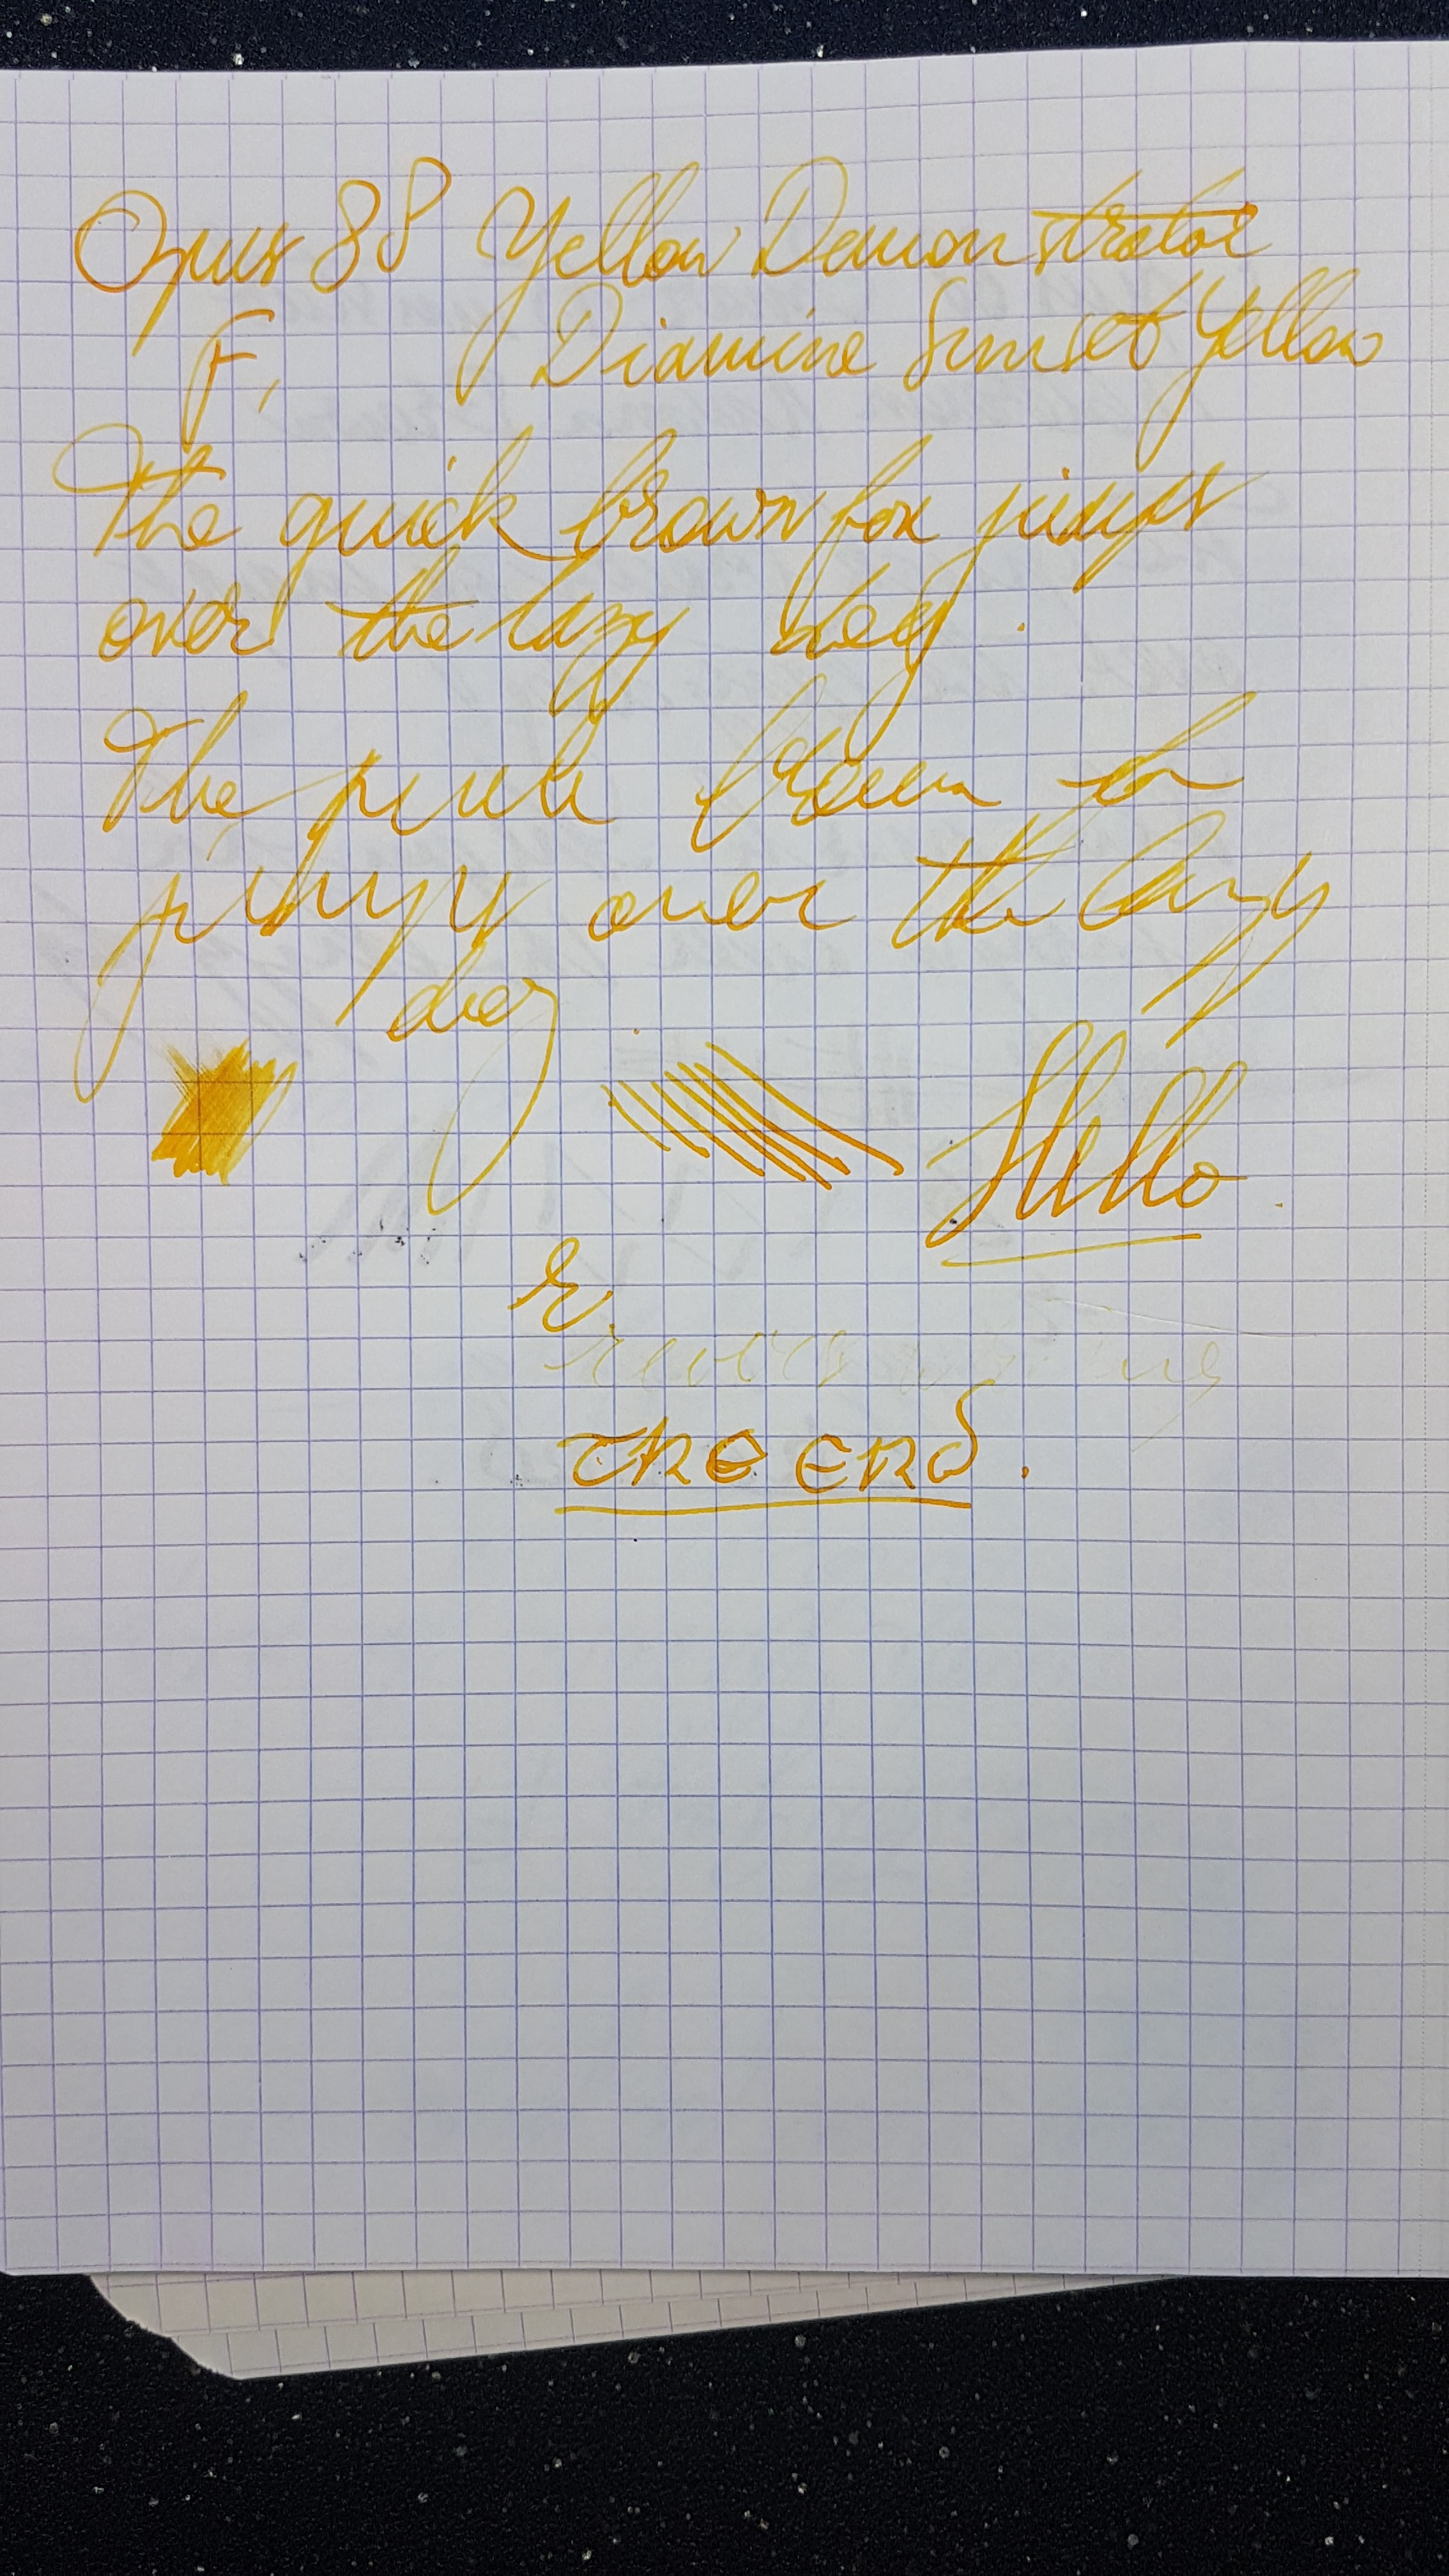 Opus 88 Yellow Demonstrator
F, Diamine Sunset Yellow
The quick brown fox jumps
over the lazy dog.
The quick brown fox
jumps over the lazy
dog.
Hello.
E.
reverse writing
THE END.